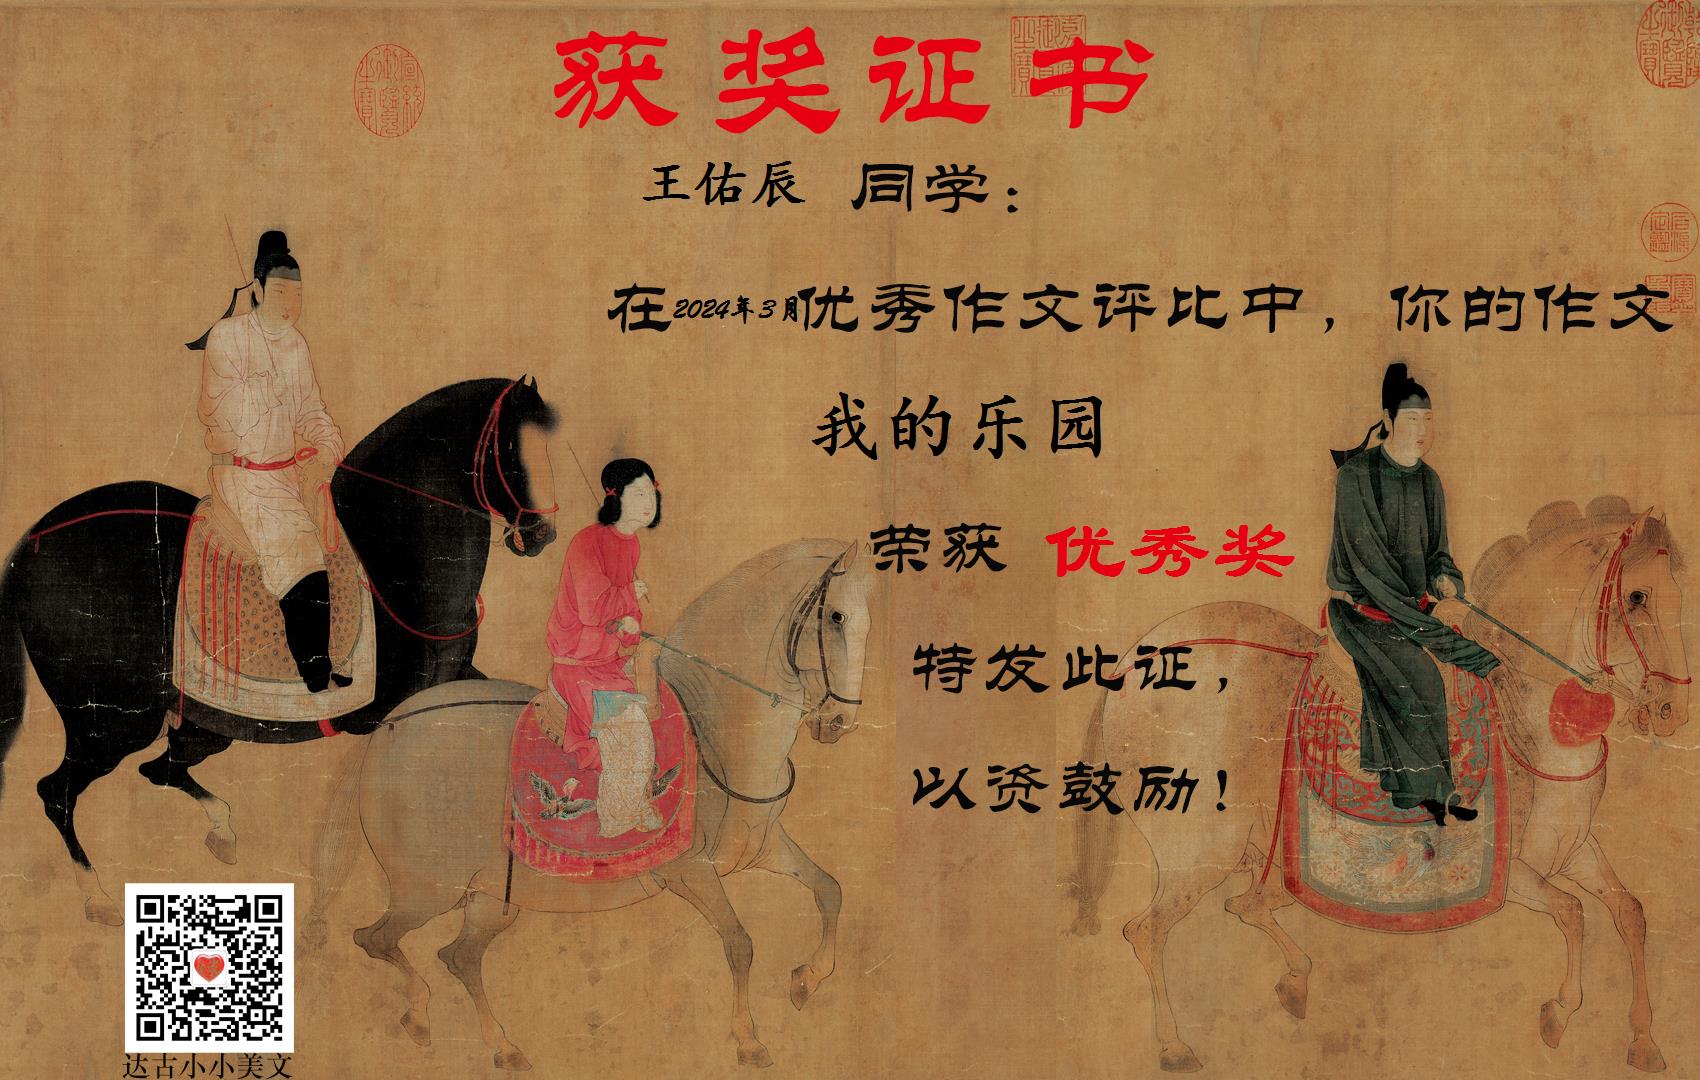 获奖证书
王佑辰 同学：
在2024年3月优秀作文评比中，你的作文
我的乐园
荣获 优秀奖
特发此证，
以资鼓励！
达古小小美文